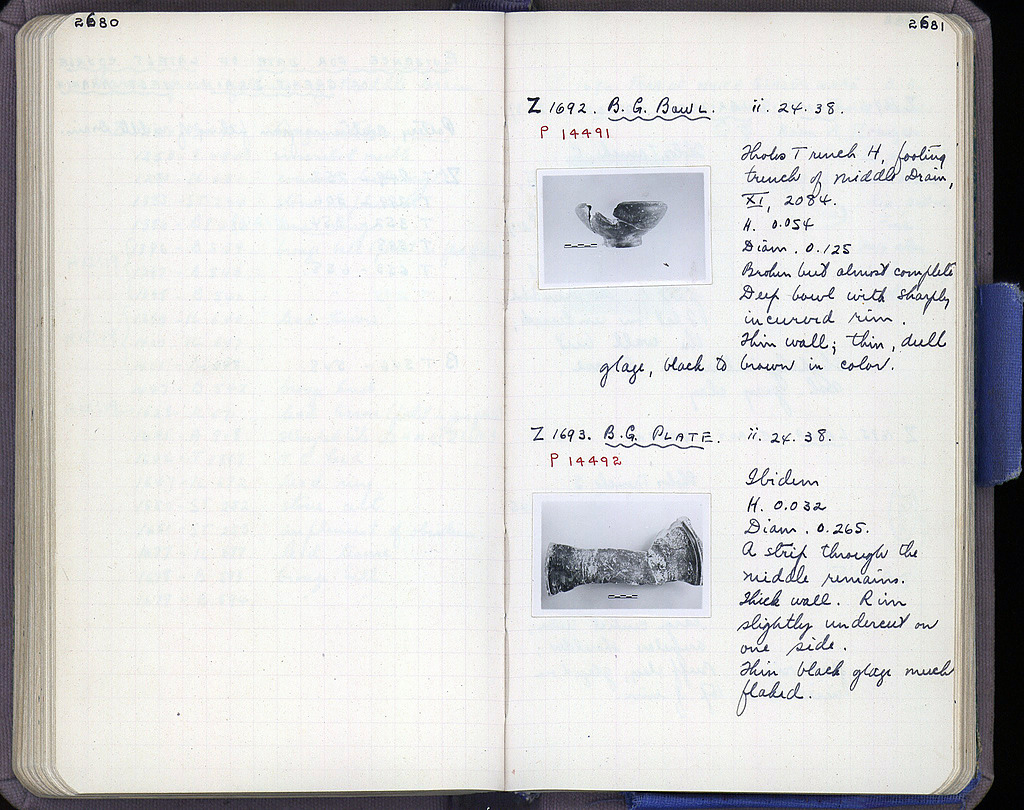 2680
2681
Z 1692. B. G. BOWL. ii. 24. 38.
P 14491
Tholos Trench H, footing
trench of Middle Drain,
XI, 2084.
H. 0.054
Diam. 0.125
Broken but almost complete
Deep bowl with sharply
incurved rim.
Thin wall; thin, dull
glaze, black to brown in color.
Z 1693. B.G. PLATE. ii. 24. 38.
P 14492
Ibidem
H. 0.032
Diam. 0.265.
A strip through the
middle remains.
Thick wall. Rim
slightly undercut on
one side.
Thin black glaze much
flaked.